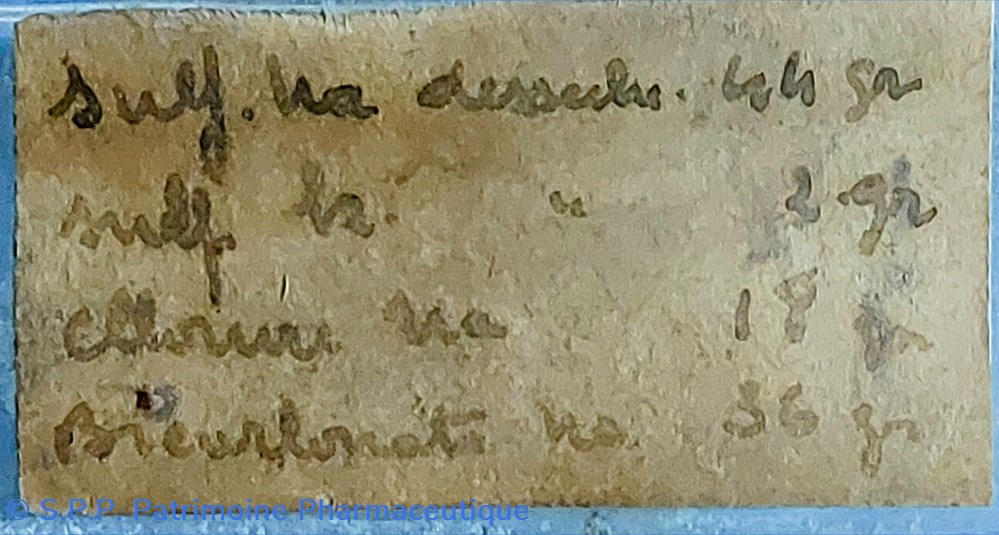 Sulf. Na dessech. 44 gr
sulf K. " 2 gr
chlorure Na 18 gr
Bicarbonate Na 36 gr
© S.P.P. Patrimoine Pharmaceutique